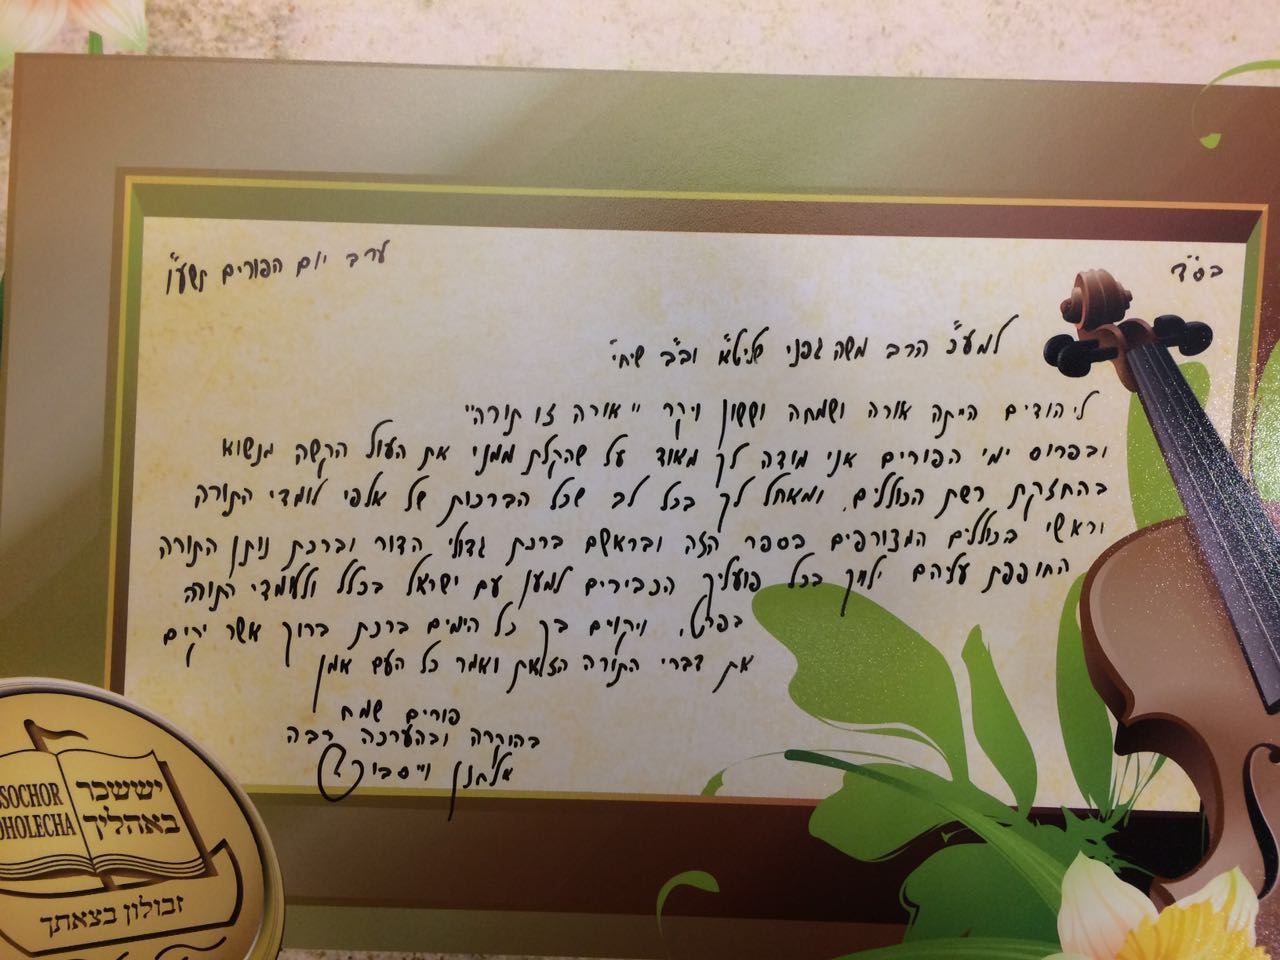 בס״ד
ערב יום הפורים תשע״ו
למע״כ הרב משה גפני שליט״א וב״ב שיחי׳
ליהודים היתה אורה ושמחה וששון ויקר ״אורה זו תורה״
ובפרוס ימי הפורים אני מודה לך מאוד על שהקלת ממני את העול הקשה מנשוא
בהחזקת רשת הכוללים, ומאחל לך בכל לב שכל הברכות של אלפי לומדי התורה
וראשי הכוללים המצורפים בספר הזה ובראשם ברכת גדולי הדור וברכת נותן התורה
החופפת עליהם ילווך בכל פועליך הכבירים למען עם ישראל בכלל וללומדי התורה
בפרט, ויקוים בך כל הימים ברכת ברוך אשר יקים
את דברי התורה הזאת ואמר כל העם אמן
פורים שמח
בהוקרה ובהערכה רבה
אלחנן
SSOCHOR
OHOLECHA
יששכר
באהליך
זבולון בצאתך